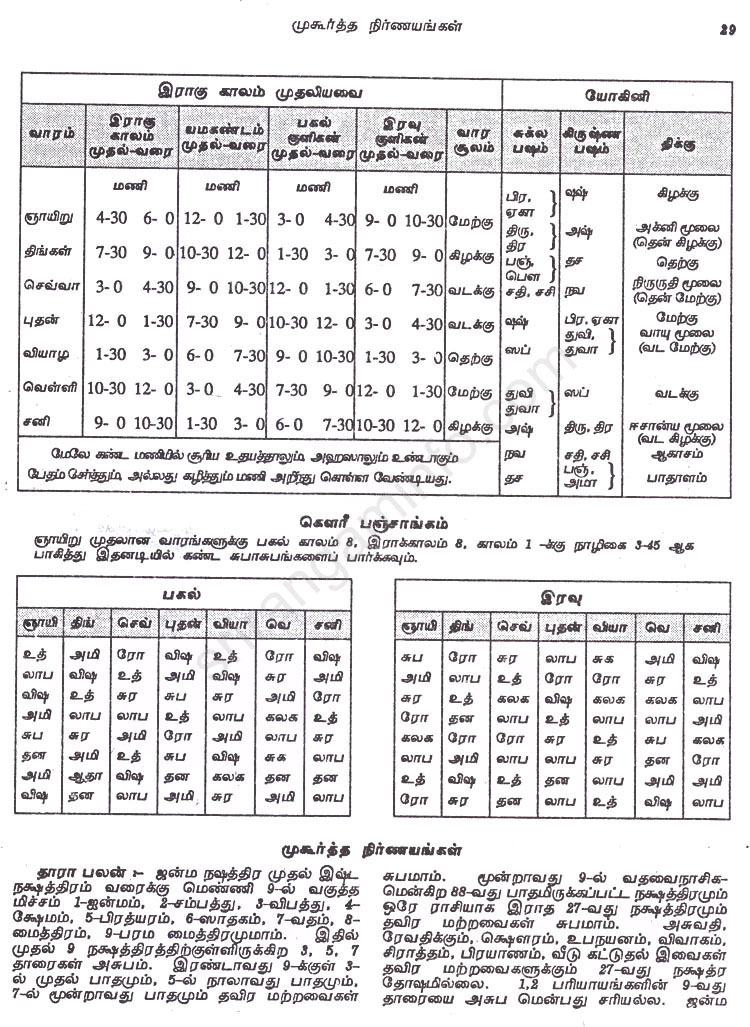 முகூர்த்த நிர்ணயங்கள் 29
இராகு காலம் முதலியவை யோகினி
வாரம் இராகு காலம் முதல்-வரை யமகண்டம் முதல்-வரை பகல் குளிகன் முதல்-வரை இரவு குளிகன் முதல்-வரை வார சூலம் சுக்ல பஷம் கிருஷ்ண பஷம் திக்கு
மணி மணி மணி மணி
ஞாயிறு 4-30 6- 0 12- 0 1-30 3- 0 4-30 9- 0 10-30 மேற்கு
திங்கள் 7-30 9- 0 10-30 12- 0 1-30 3- 0 7-30 9- 0 கிழக்கு
செவ்வா 3- 0 4-30 9- 0 10-30 12- 0 1-30 6- 0 7-30 வடக்கு
புதன் 12- 0 1-30 7-30 9- 0 10-30 12- 0 3- 0 4-30 வடக்கு
வியாழ 1-30 3- 0 6- 0 7-30 9- 0 10-30 1-30 3- 0 தெற்கு
வெள்ளி 10-30 12- 0 3- 0 4-30 7-30 9- 0 12- 0 1-30 மேற்கு
சனி 9- 0 10-30 1-30 3- 0 6- 0 7-30 10-30 12- 0 கிழக்கு
பிர, ஏகா } ஷஷ் கிழக்கு
திரு, திர } அஷ் அக்னி மூலை (தென் கிழக்கு)
பஞ், பௌ } தச தெற்கு
சதி, சசி நவ நிருருதி மூலை (தென் மேற்கு)
ஷஷ் பிர, ஏகா மேற்கு
ஸப் துவி, துவா } வாயு மூலை (வட மேற்கு)
துவி துவா } ஸப் வடக்கு
அஷ் திரு, திர ஈசான்ய மூலை (வட கிழக்கு)
நவ சதி, சசி ஆகாசம்
தச பஞ், அமா } பாதாளம்
மேலே கண்ட மணியில் சூரிய உதயத்தாலும், அஹஸாலும் உண்டாகும்
பேதம் சேர்த்தும், அல்லது கழித்தும் மணி அறிந்து கொள்ள வேண்டியது.
கௌரீ பஞ்சாங்கம்
ஞாயிறு முதலான வாரங்களுக்கு பகல் காலம் 8, இராக்காலம் 8, காலம் 1 -க்கு நாழிகை 3-45 ஆக
பாகித்து இதனடியில் கண்ட சுபாசுபங்களைப் பார்க்கவும்.
பகல்
ஞாயி திங் செவ் புதன் வியா வெ சனி
உத் அமி ரோ விஷ உத் ரோ விஷ
லாப விஷ உத் அமி விஷ சுர அமி
விஷ உத் சுர சுப சுர அமி ரோ
அமி லாப லாப உத் லாப கலக உத்
சுப சுர அமி ரோ அமி லாப சுர
தன அமி உத் சுப விஷ சுக லாப
அமி ஆதா விஷ தன கலக தன தன
விஷ தன லாப அமி சுர அமி லாப
இரவு
ஞாயி திங் செவ் புதன் வியா வெ சனி
சுப ரோ சுர லாப சுக அமி விஷ
அமி லாப உத் ரோ ரோ சுர உத்
சுர உத் கலக விஷ கலக கலக லாப
ரோ தன லாப உத் லாப லாப அமி
கலக ரோ ரோ சுர உத் சுப கலக
லாப அமி லாப லாப சுர தன ரோ
உத் விஷ உத் தன லாப அமி உத்
ரோ சுர தன லாப உத் விஷ லாப
முகூர்த்த நிர்ணயங்கள்
தாரா பலன் :- ஜன்ம நஷத்திர முதல் இஷ்ட
நக்ஷத்திரம் வரைக்கு மெண்ணி 9-ல் வகுத்த
மிச்சம் 1-ஜன்மம், 2-சம்பத்து, 3-விபத்து, 4-
க்ஷேமம், 5-பிரத்யரம், 6-ஸாதகம், 7-வதம், 8-
மைத்திரம், 9-பரம மைத்திரமுமாம். இதில்
முதல் 9 நக்ஷத்திரத்திற்குள்ளிருக்கிற 3, 5, 7
தாரைகள் அசுபம். இரண்டாவது 9-க்குள் 3-
ல் முதல் பாதமும், 5-ல் நாலாவது பாதமும்,
7-ல் மூன்றாவது பாதமும் தவிர மற்றவைகள்
சுபமாம். மூன்றாவது 9-ல் வதவைநாசிக-
மென்கிற 88-வது பாதமிருக்கப்பட்ட நக்ஷத்திரமும்
ஒரே ராசியாக இராத 27-வது நக்ஷத்திரமும்
தவிர மற்றவைகள் சுபமாம். அசுவதி,
ரேவதிக்கும், க்ஷௌரம், உபநயனம், விவாகம்,
சிராத்தம், பிரயாணம், வீடு கட்டுதல் இவைகள்
தவிர மற்றவைகளுக்கும் 27-வது நக்ஷத்ர
தோஷமில்லை. 1,2 பரியாயங்களின் 9-வது
தாரையை அசுப மென்பது சரியல்ல. ஜன்ம